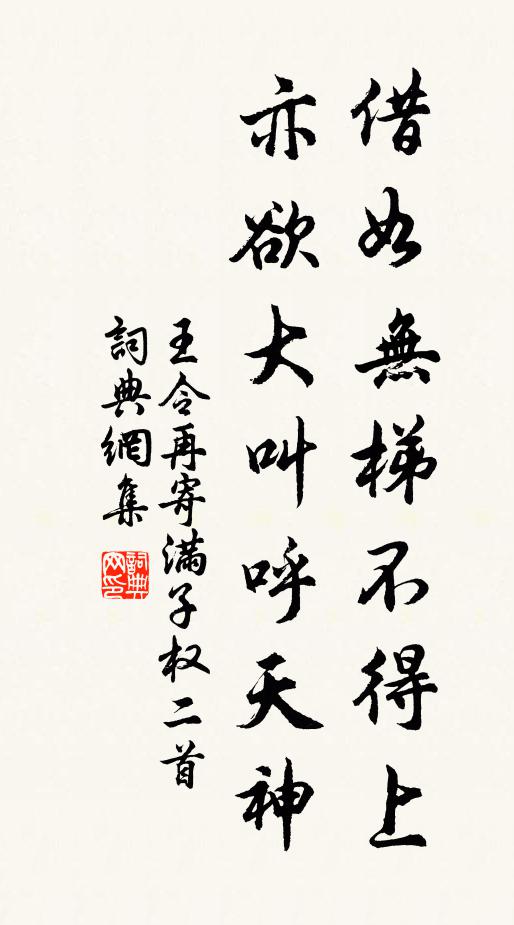 借如無梯不得上
亦欲大叫呼天神
王令再寄滿子权二首
詞典網集
詞典網印